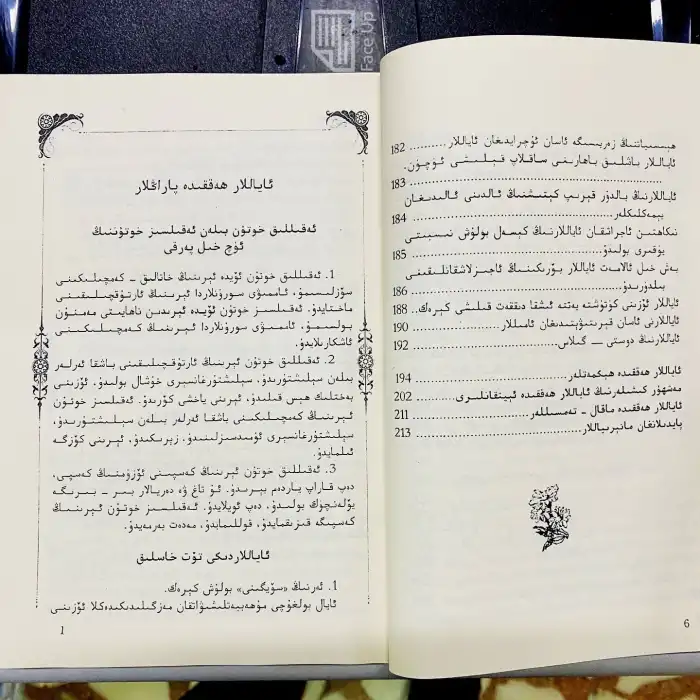 ھېسسىياتنىڭ زەربىسىگە ئاسان ئۇچرايدىغان ئاياللار .......... 182
ئاياللار باشلىق باھارىنى ساقلاپ قېلىشى ئۈچۈن.
.......... 183
ئاياللارنىڭ بالدۇر قېرىپ كېتىشىنىڭ ئالدىنى ئالىدىغان
يېمەكلىكلەر .......... 184
نىكاھتىن ئاجراشقان ئاياللارنىڭ كېسەل بولۇش نىسبىتى
يۇقىرى بولىدۇ .......... 185
بەش خىل ئالامەت ئاياللار بۆرىكىنىڭ ئاجىزلاشقانلىقىنى
بىلدۈرىدۇ .......... 186
ئاياللار ئۆزىنى كۈتۈشتە يەتتە ئىشقا دىققەت قىلىشى كېرەك.. 188
ئاياللارنى ئاسان قېرىتىۋېتىدىغان ئامىللار .......... 190
ئاياللارنىڭ دوستى — گىلاس .......... 192
ئاياللار ھەققىدە ھېكمەتلەر .......... 194
مەشھۇر كىشىلەرنىڭ ئاياللار ھەققىدە ئېيتقانلىرى .......... 202
ئاياللار ھەققىدە ماقال - تەمسىللەر .......... 211
پايدىلانغان ماتېرىياللار .......... 213
6
ئاياللار ھەققىدە پاراڭلار
ئەقىللىق خوتۇن بىلەن ئەقىلسىز خوتۇننىڭ
ئۈچ خىل پەرقى
1. ئەقىللىق خوتۇن ئۆيدە ئېرىنىڭ خاتالىق - كەمچىلىكىنى
سۆزلىسىمۇ، ئاممىۋى سورۇنلاردا ئېرىنىڭ ئارتۇقچىلىقىنى
ماختايدۇ. ئەقىلسىز خوتۇن ئۆيدە ئېرىدىن ناھايىتى مەمنۇن
بولسىمۇ، ئاممىۋى سورۇنلاردا ئېرىنىڭ كەمچىلىكىنى
ئاشكارىلايدۇ.
2. ئەقىللىق خوتۇن ئېرىنىڭ ئارتۇقچىلىقىنى باشقا ئەرلەر
بىلەن سېلىشتۇرىدۇ، سېلىشتۇرغانسېرى خۇشال بولىدۇ، ئۆزىنى
بەختلىك ھېس قىلىدۇ، ئېرىنى ياخشى كۆرىدۇ. ئەقىلسىز خوتۇن
ئېرىنىڭ كەمچىلىكىنى باشقا ئەرلەر بىلەن سېلىشتۇرىدۇ،
سېلىشتۇرغانسېرى ئۈمىدسىزلىنىدۇ، زېرىكىدۇ، ئېرىنى كۆزگە
ئىلمايدۇ.
3. ئەقىللىق خوتۇن ئېرىنىڭ كەسپىنى ئۆزۈمنىڭ كەسپى،
دەپ قاراپ ياردەم بېرىدۇ. ئۇ تاغ ۋە دەريالار بىر - بىرىگە
يۆلەنچۈك بولىدۇ، دەپ ئويلايدۇ. ئەقىلسىز خوتۇن ئېرىنىڭ
كەسپىگە قىزىقمايدۇ، قوللىمايدۇ، مەدەت بەرمەيدۇ.
ئاياللاردىكى تۆت خاسلىق
1. ئەرنىڭ «سۆيگىنى» بولۇش كېرەك.
ئايال بولغۇچى مۇھەببەتلىشىۋاتقان مەزگىلىدىكىدەكلا ئۆزىنى
1
Face Up